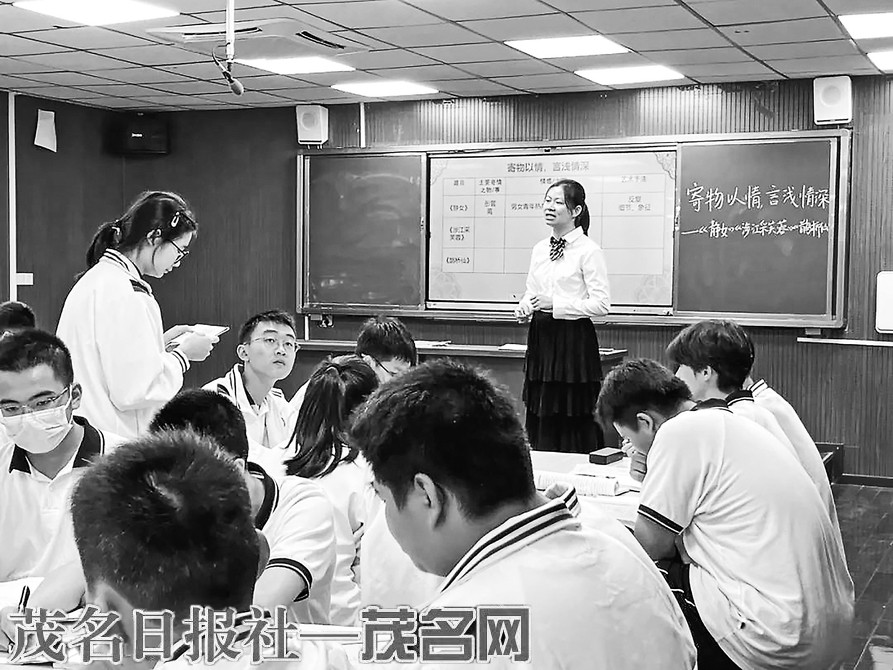 寄物以情,言浅情深
篇目 主要寄情之物/事 情感 艺术手法
《静女》 彤管 荑 男女青年热 反复 细节、象征
《涉江采芙蓉》
《鹊桥仙》
寄物以情,言浅情深
——《静女》《涉江采芙蓉》《鹊桥仙》
茂名日报社—茂名网